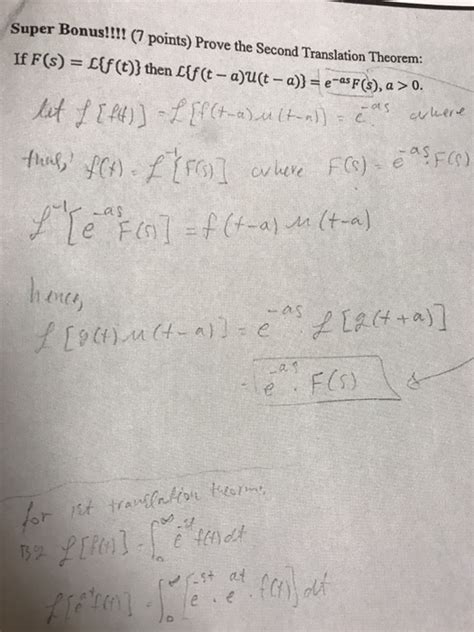 Super Bonus!!!! (7 points) Prove the Second Translation Theorem:
If F(s) = ℒ{f(t)} then ℒ{f(t − a)𝒰(t − a)} = e^{-as}F(s), a > 0.
let ℒ[f(t)] = ℒ[f(t-a)u(t-a)] = e^{-as} where
thus, f(t) = ℒ^{-1}[F(s)] where F(s) = e^{-as} F(s)
ℒ^{-1}[e^{-as} F(s)] = f(t-a) u(t-a)
hence,
ℒ[g(t)u(t-a)] = e^{-as} ℒ[g(t+a)]
= e^{-as} · F(s)
for 1st translation theorm,
ℒ[f(t)] = ∫_0^∞ e^{-st} f(t) dt
ℒ[e^{at}f(t)] = ∫_0^∞ [e^{-st} · e^{at} · f(t)] dt